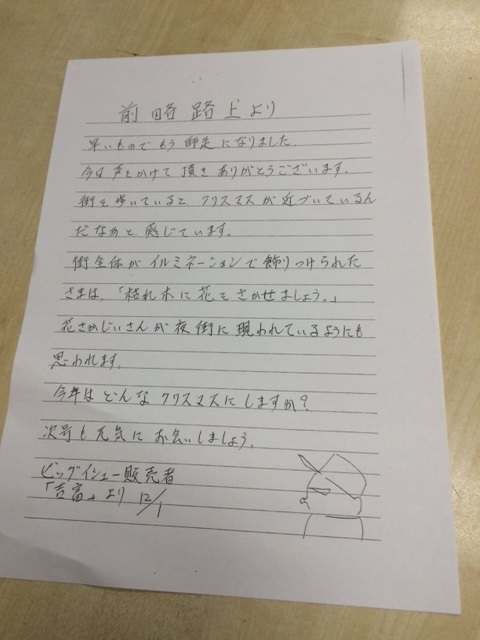 前略路上より
早いものでもう師走になりました。
今日声をかけて頂きありがとうございます。
街を歩いているとクリスマスが近づいているん
だなぁと感じています。
街全体がイルミネーションで飾りつけられた
さまは、「枯れ木に花をさかせましょう。」
花さかじいさんが夜街に現われているようにも
思われます。
今年はどんなクリスマスにしますか?
次号も元気にお会いしましょう。
ビッグイシュー販売者
「吉富」より 12/1